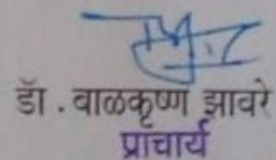 डॉ . बाळकृष्ण झावरे
प्राचार्य